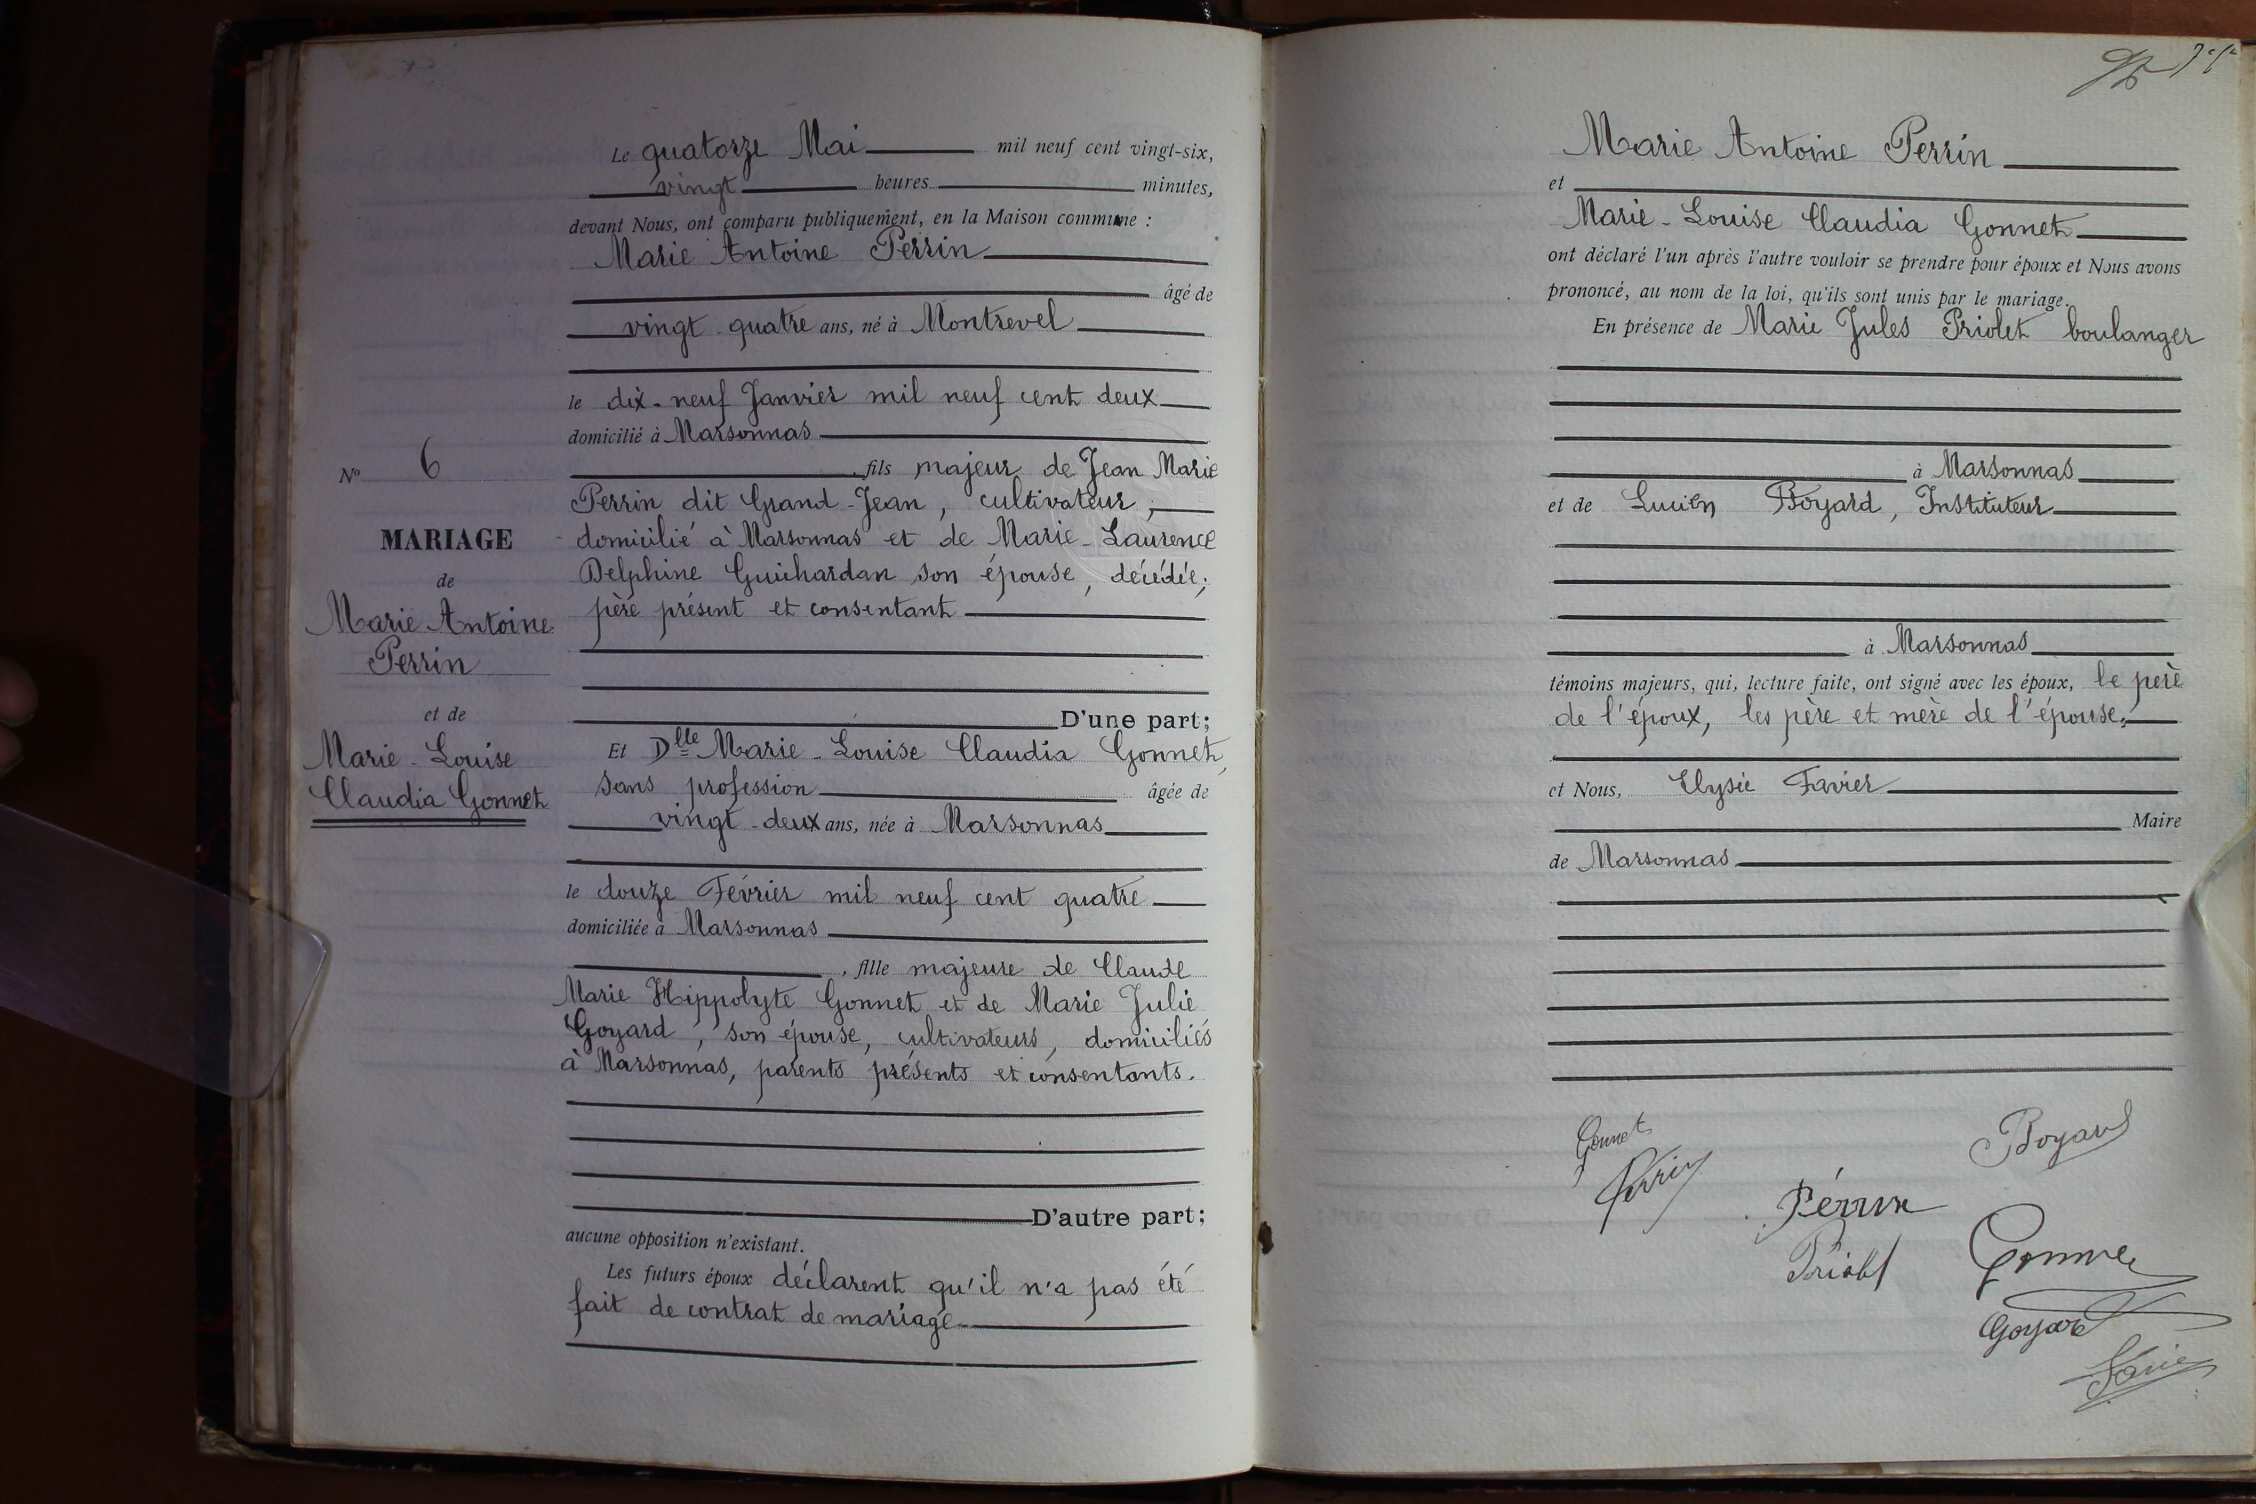 Le quatorze Mai mil neuf cent vingt-six,
vingt heures minutes,
devant Nous, ont comparu publiquement, en la Maison commune :
Marie Antoine Perrin
âgé de
vingt-quatre ans, né à Montrevel
le dix-neuf Janvier mil neuf cent deux
domicilié à Marsonnas
, fils majeur de Jean Marie
Perrin dit Grand-Jean, cultivateur,
domicilié à Marsonnas et de Marie-Laurence
Delphine Guichardan son épouse, décédée;
père présent et consentant
D'une part;
Et Dlle Marie-Louise Claudia Gonnet,
sans profession âgée de
vingt-deux ans, née à Marsonnas
le douze Février mil neuf cent quatre
domiciliée à Marsonnas
, fille majeure de Claude
Marie Hippolyte Gonnet et de Marie Julie
Goyard, son épouse, cultivateurs, domiciliés
à Marsonnas, parents présents et consentants.
D'autre part;
aucune opposition n'existant.
Les futurs époux déclarent qu'il n'a pas été
fait de contrat de mariage
No 6
MARIAGE
de
Marie Antoine
Perrin
et de
Marie-Louise
Claudia Gonnet
Marie Antoine Perrin
et
Marie-Louise Claudia Gonnet
ont déclaré l'un après l'autre vouloir se prendre pour époux et Nous avons
prononcé, au nom de la loi, qu'ils sont unis par le mariage.
En présence de Marie Jules Priolet boulanger
à Marsonnas
et de Lucien Boyard, Instituteur
à Marsonnas
témoins majeurs, qui, lecture faite, ont signé avec les époux, le père
de l'époux, les père et mère de l'épouse,
et Nous, Elysée Favier
Maire
de Marsonnas
Gonnet
Perrin
Boyard
Pérrin
Priolet
Gonnet
Goyard
Favier